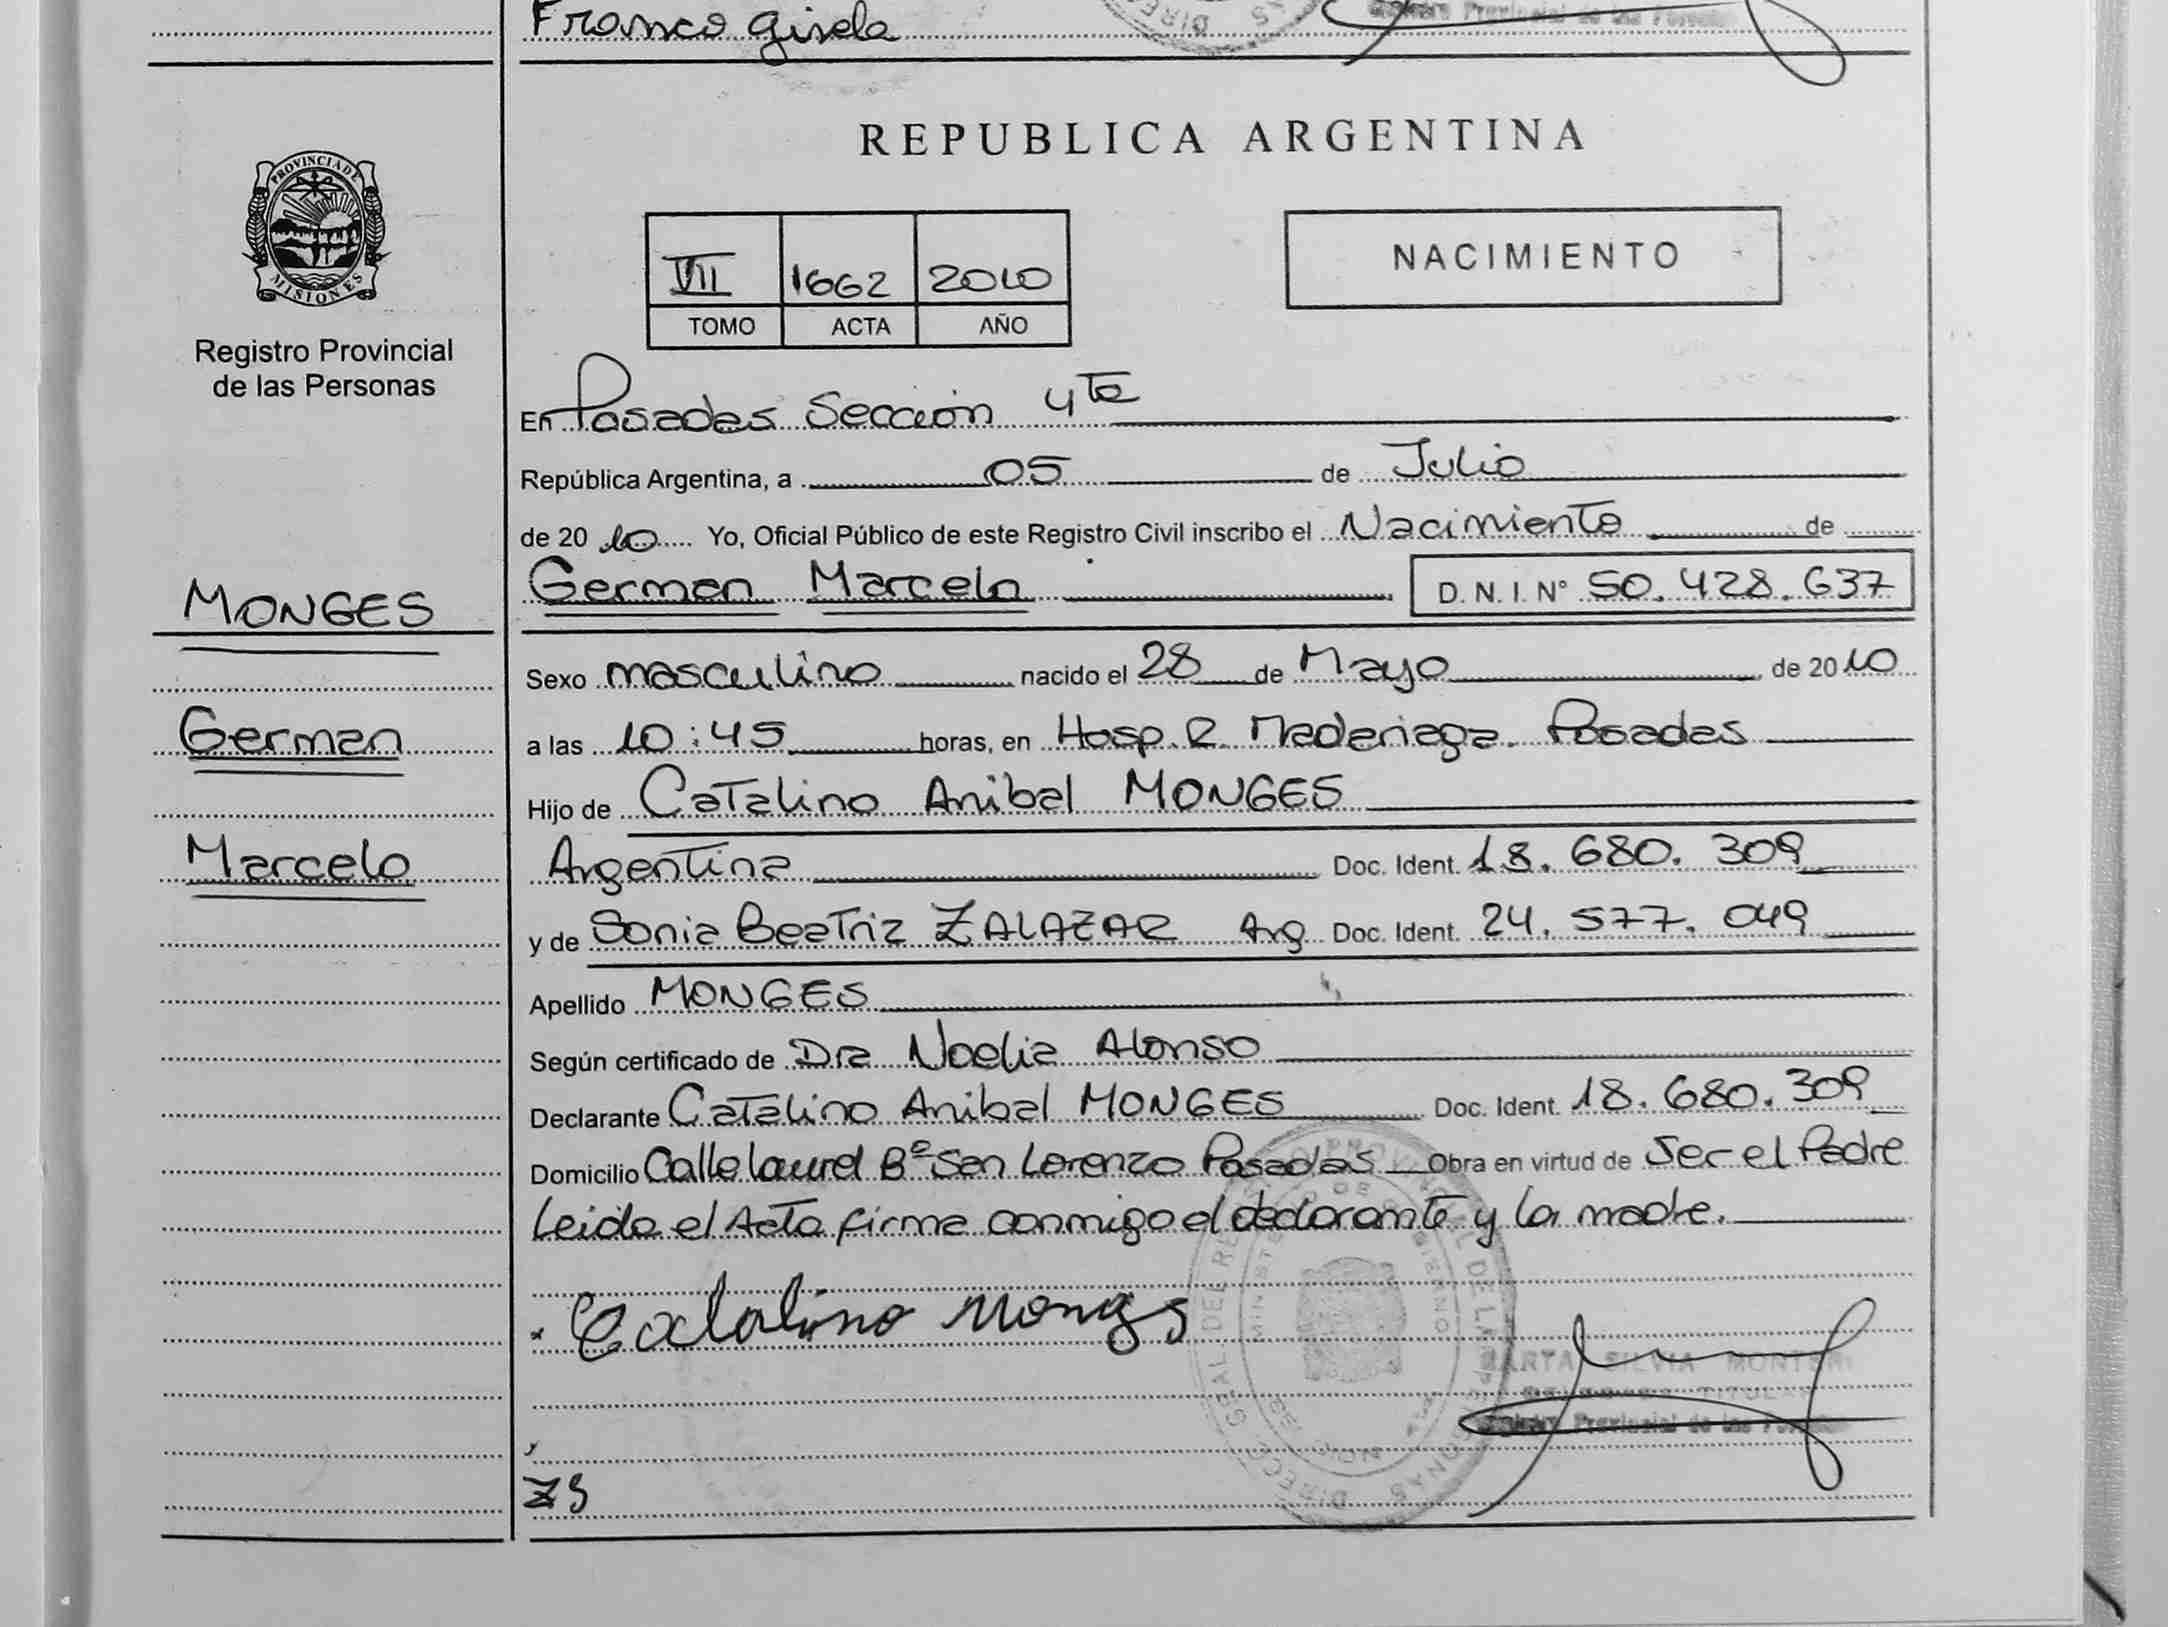 Franco Gisela
PROVINCIA DE
MISIONES
Registro Provincial
de las Personas
REPUBLICA ARGENTINA
VII 1662 2010
TOMO ACTA AÑO
NACIMIENTO
En Posadas Sección 4ta
República Argentina, a 05 de Julio
de 20 10 Yo, Oficial Público de este Registro Civil inscribo el Nacimiento de
German Marcelo D. N. I. N° 50.428.637
MONGES
German
Marcelo
Sexo masculino nacido el 28 de Mayo de 20 10
a las 10:45 horas, en Hosp. R. Madariaga. Posadas
Hijo de Catalino Anibal MONGES
Argentina Doc. Ident. 18.680.309
y de Sonia Beatriz ZALAZAR Arg Doc. Ident. 24.577.049
Apellido MONGES
Según certificado de Dra Noelia Alonso
Declarante Catalino Anibal MONGES Doc. Ident. 18.680.309
Domicilio Calle laurel B° San Lorenzo Posadas Obra en virtud de Ser el Padre
Leida el Acta firma conmigo el declarante y la madre.
Catalino Monges
MARTA SILVIA
TITULAR
Provincial de las
ZS